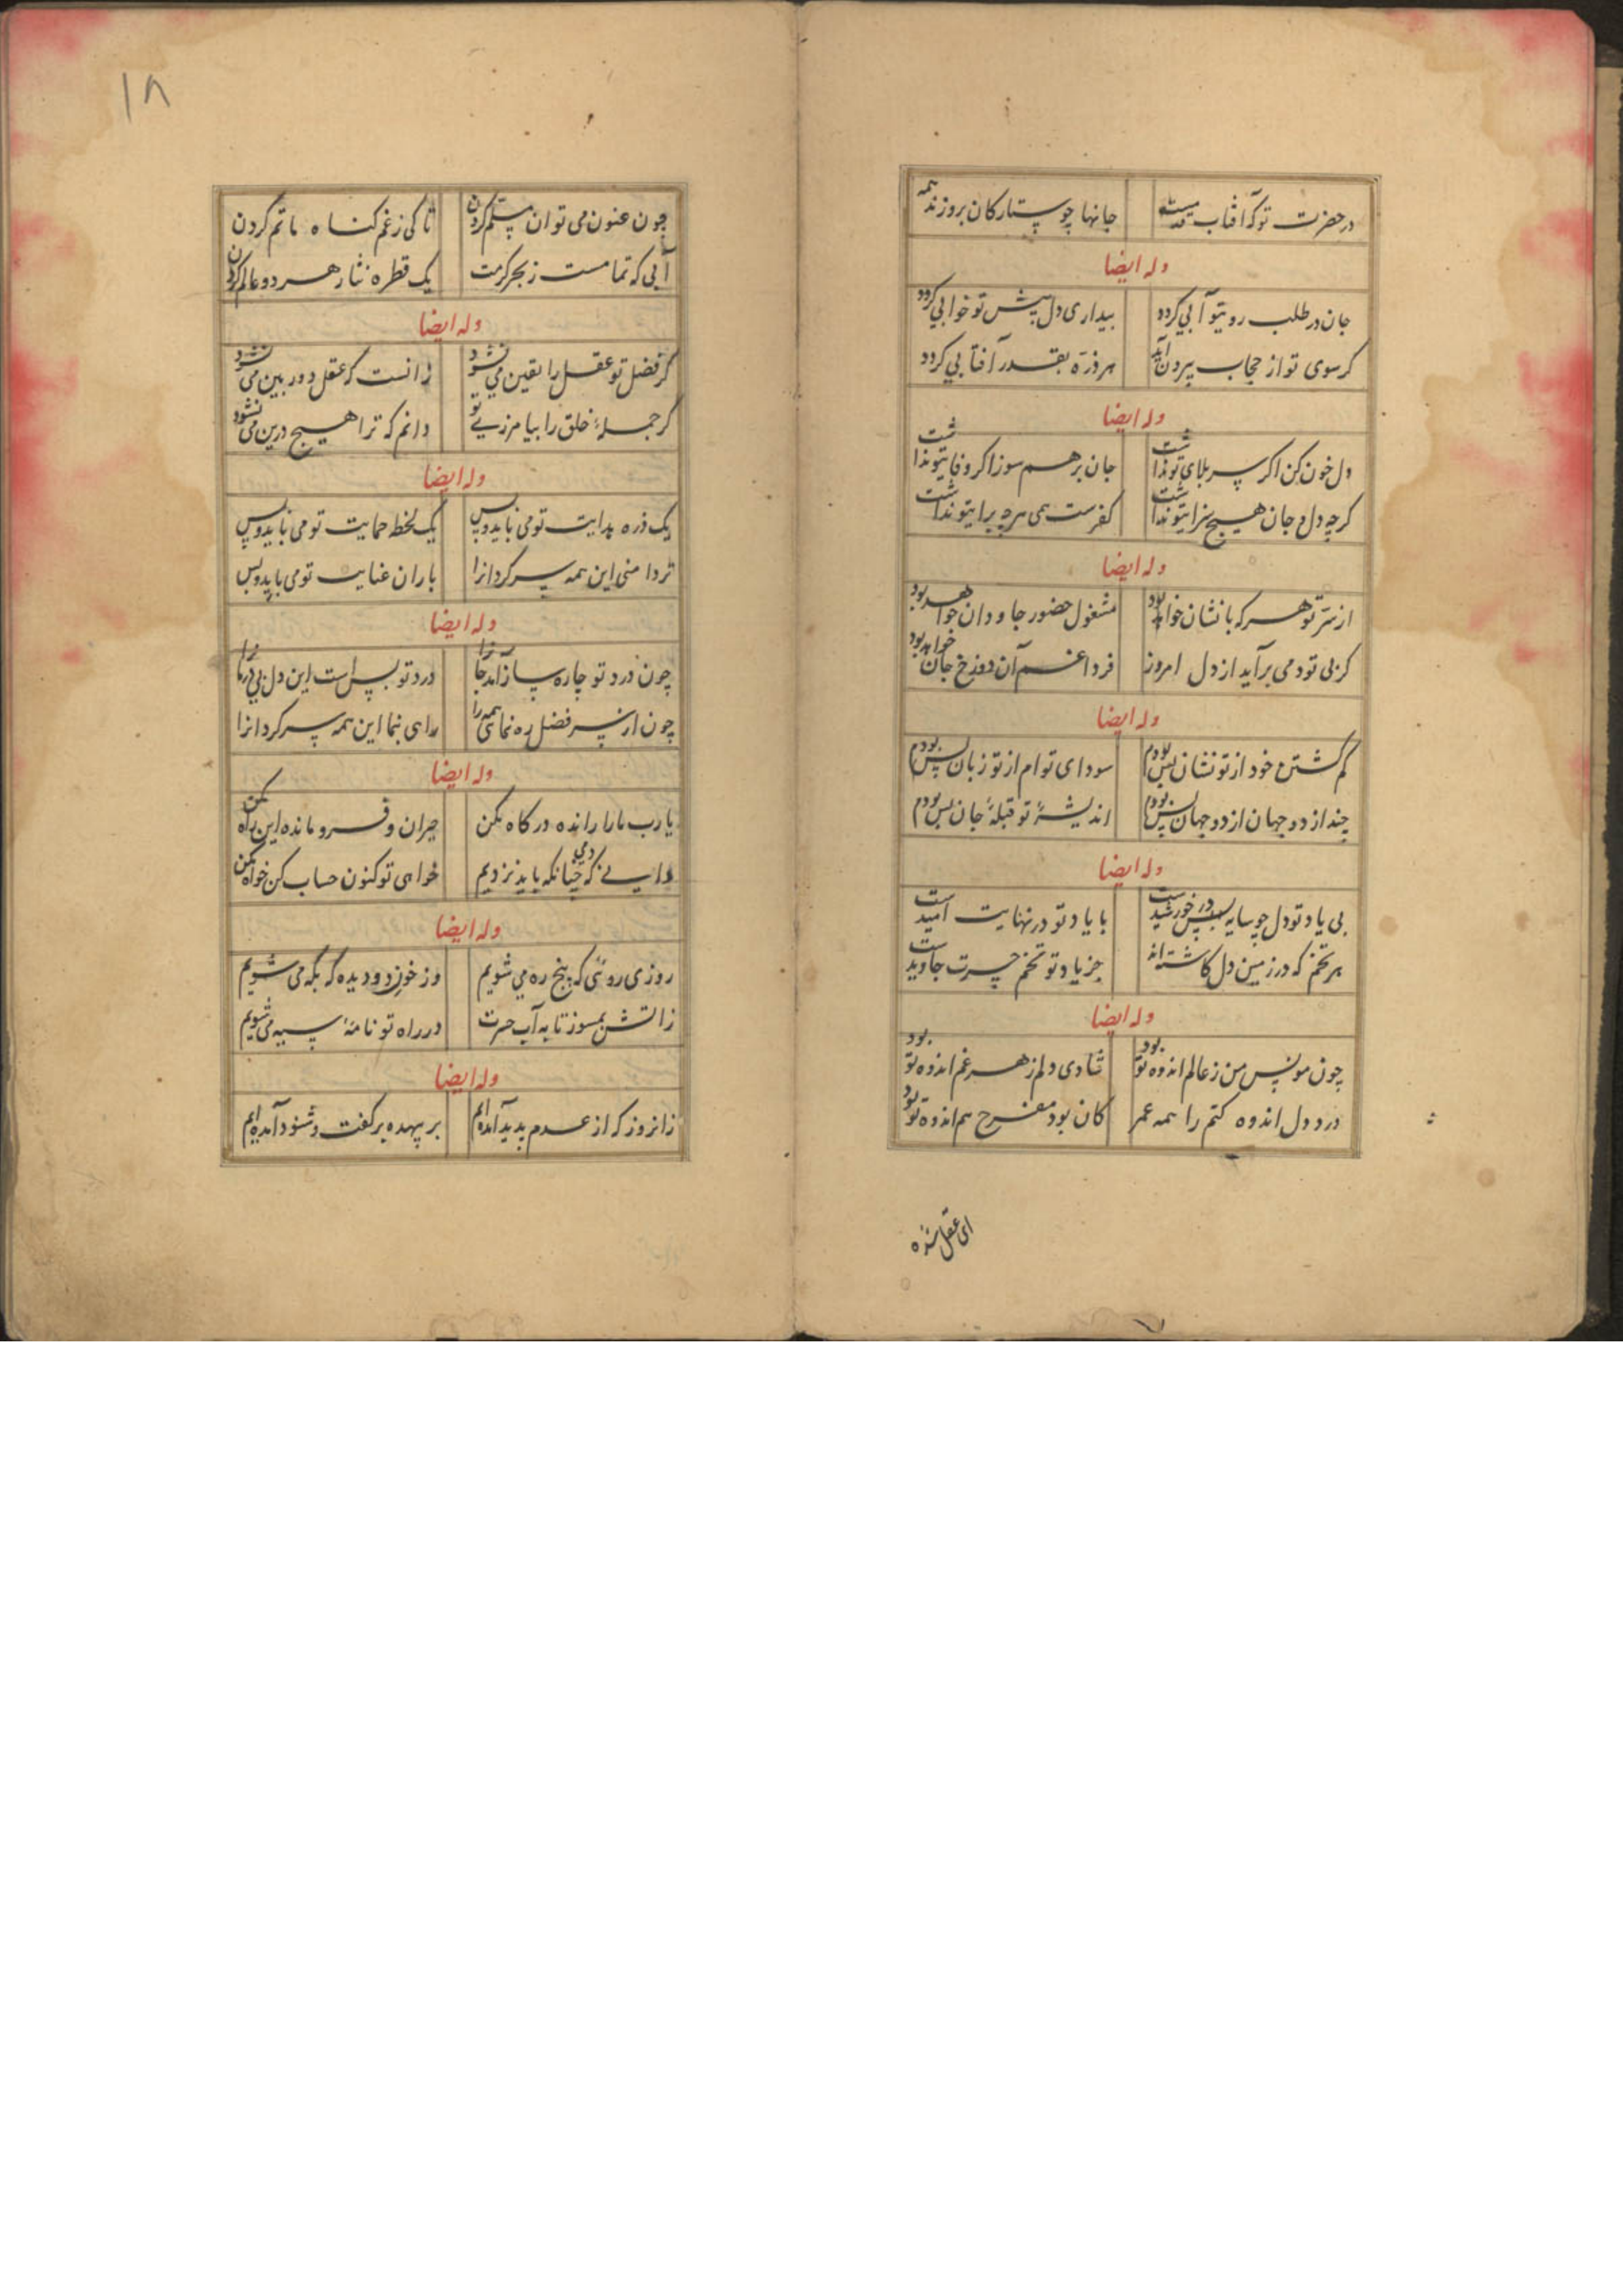 در حضرت تو که آفتاب قدمند جانها چو ستارکان بروزند همه
وله ایضا
جان در طلب رویتو آبی کردد بیداری دل پیش تو خوابی کردد
کر سوی تو از حجاب بیرون آید هر ذره بقدر آفتابی کردد
وله ایضا
دل خون کن اکر سر بلای تو نداشت جان بر هم سوز اکر وفایتو نداشت
کرچه دل و جان هیچ سزایتو نداشت کفرست همی هرچه برایتو نداشت
وله ایضا
از سر تو هر که با نشان خواهد بود مشغول حضور جاودان خواهد بود
کر بی تو دمی برآید از دل امروز فردا غم آن دوزخ جان خواهد بود
وله ایضا
کم کشتن خود از تو نشان بس بودم سودای توام از تو زبان بس بودم
چند از دو جهان از دو جهان بس بودم اندیشهٔ تو قبلهٔ جان بس بودم
وله ایضا
بی یاد تو دل چو سایه در خورشیدست با یاد تو در نهایت امیدست
هر تخم که در زمین دل کاشته‌اند جز یاد تو تخم حسرت جاویدست
وله ایضا
چون مونس من ز عالم اندوه تو بود شادی دلم ز هر غم اندوه تو بود
درد دل اندوه کشم را همه عمر کان بود مفرح هم اندوه تو بود
ای عقل شده
۱۸
چون عفو می توان مسلم کردن تا کی ز غم کناه ماتم کردن
آبی که تمامست ز بحر کرمت یک قطره نثار هر دو عالم کردن
وله ایضا
کر فضل تو عقل را یقین می نشود زانست که عقل دوربین می نشود
کر جملهٔ خلق را بیامرزی تو دانم که ترا هیچ درین می نشود
وله ایضا
یک ذره هدایت تو می باید و بس یک لحظه حمایت تو می باید و بس
تردامنی این همه سرکردانرا باران عنایت تو می باید و بس
وله ایضا
چون درد تو چاره ساز آمد جانرا درد تو بس است این دل بی درمانرا
چون از سر فضل ره نمائی همه را راهی بنما این همه سرکردانرا
وله ایضا
یا رب ما را رانده درکاه مکن حیران و فرو مانده این راه مکن
دانی که چنانکه باید نزدیم دمی خواهی تو کنون حساب کن خواه مکن
وله ایضا
روزی روئی که پنج ره می شویم وز خون دو دیده که بکه می شویم
زاتش بمسوز تا به آب حسرت در راه تو نامهٔ سیه می شویم
وله ایضا
زانروز که از عدم بدید آمده‌ایم بر بیهده بر کفت و شنود آمده‌ایم